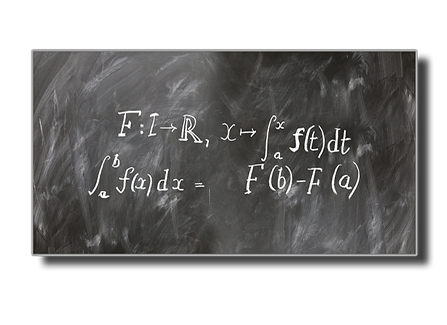 F: I → ℝ, x ↦ ∫ₐˣ f(t)dt
∫ₐᵇ f(x)dx = F(b)-F(a)